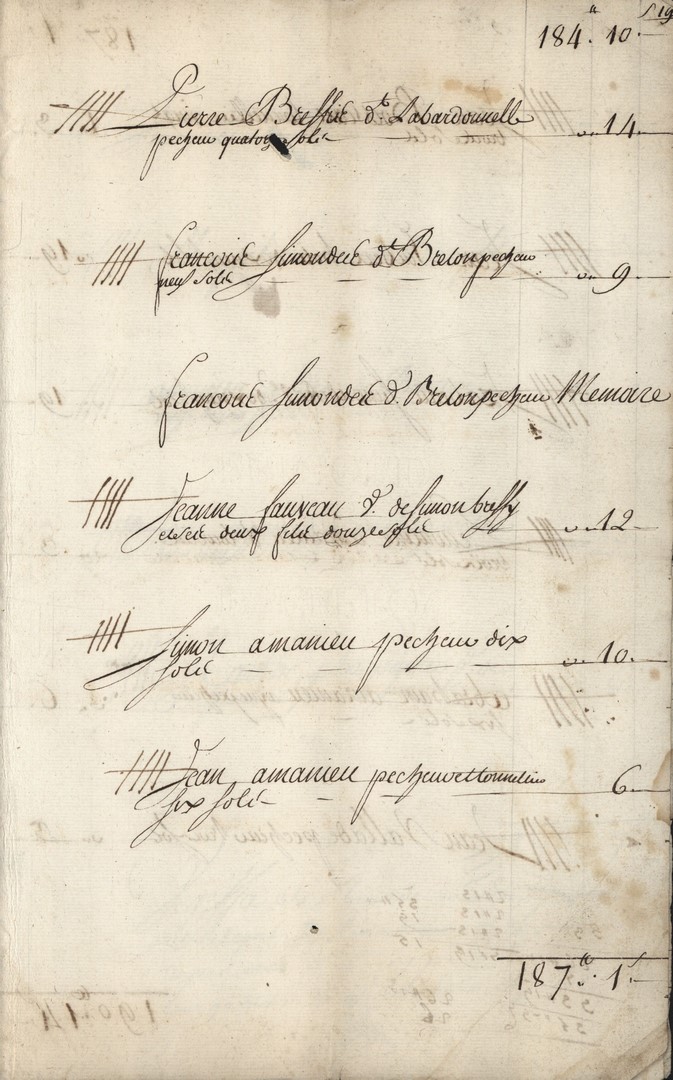 184.tt 10.
Pierre Bressie dt Labardonnelle
pecheur quatorze solz
o..14.
francois Simondet dt Breton pecheur
neuf solz
o.. 9
francois Simondet d. Breton pecheur Memoire
Jeanne fauveau v. de Simon bassy
et ses deux filz douze solz
o..12
Simon amanieu pecheur dix
solz
o.. 10.
Jean amanieu pecheur et tonnelier
six solz
6
187.tt 1.s